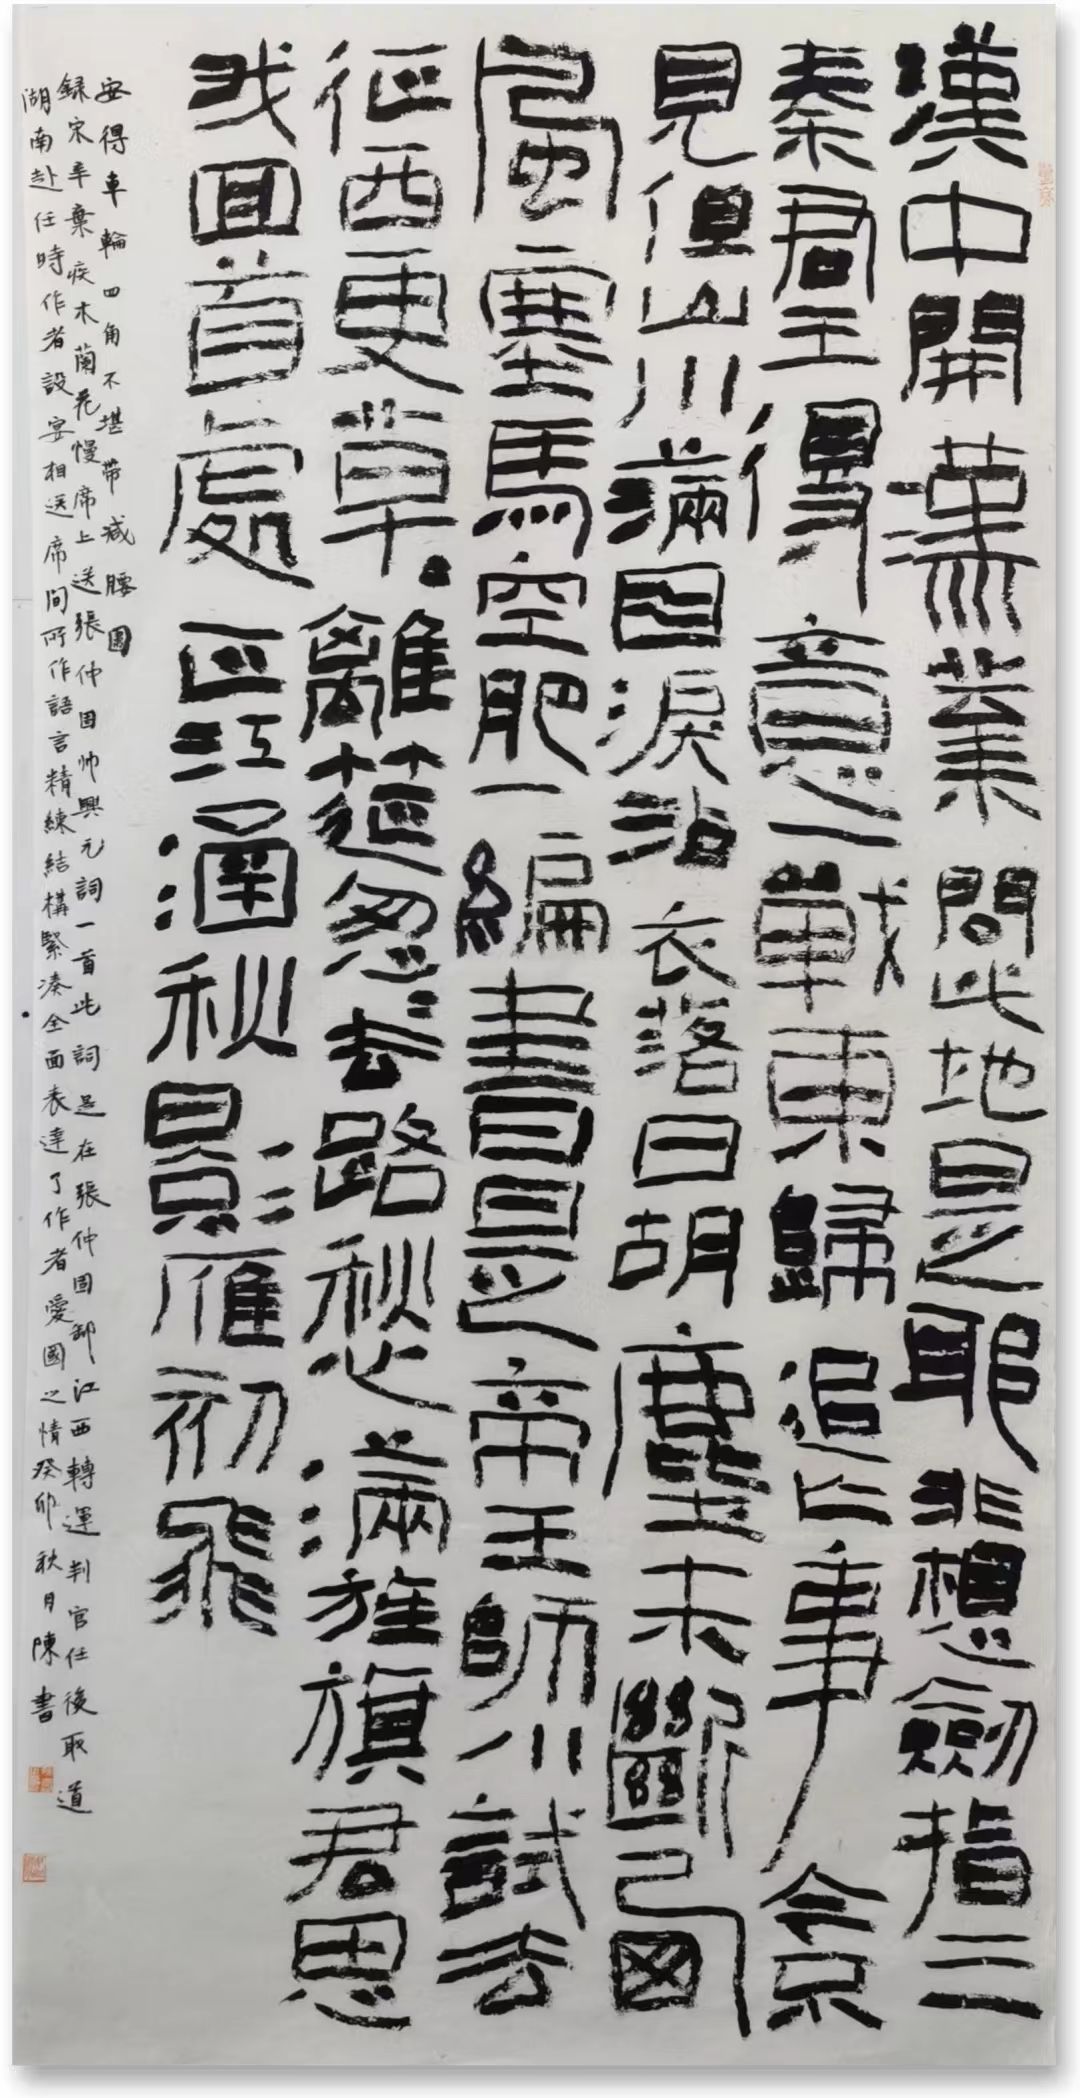 漢中開漢業問此地是耶非想劍指三
秦君王得意一戰東歸追亡事今不
見但山川滿目淚沾衣落日胡塵未斷西
風塞馬空肥一編書是帝王師小試去
征西更草〻離筵怱〻去路愁滿旌旗君思
我回首處正江涵秋影雁初飛
安得車輪四角不堪帶減腰圍
録宋辛棄疾木蘭花慢席上送張仲固帥興元詞一首此詞是在張仲固卸江西轉運判官任後取道
湖南赴任時作者設宴相送席間所作語言精練結構緊湊全面表達了作者愛國之情癸卯秋月陳書